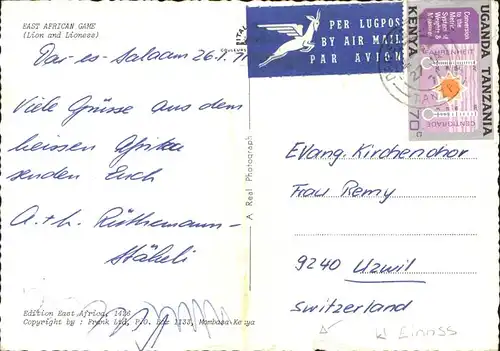 EAST AFRICAN GAME
(Lion and Lioness)
Dar-es-Salaam 26.1.71
Viele Grüsse aus dem
heissen Afrika
senden Euch
A. + H. Rüthemann-
Stäheli
Edition East Africa, 1426
Copyright by : Frank Ltd, P.O. Box 1133, Mombasa-Kenya
A Real Photograph
PER LUGPOS
BY AIR MAIL
PAR AVION
UGANDA TANZANIA
KENYA
Conversion
to the
Metric
System of
Weights &
Measures
CENTIGRADE
70c
Evang. Kirchenchor
Frau Remy
9240 Uzwil
Switzerland